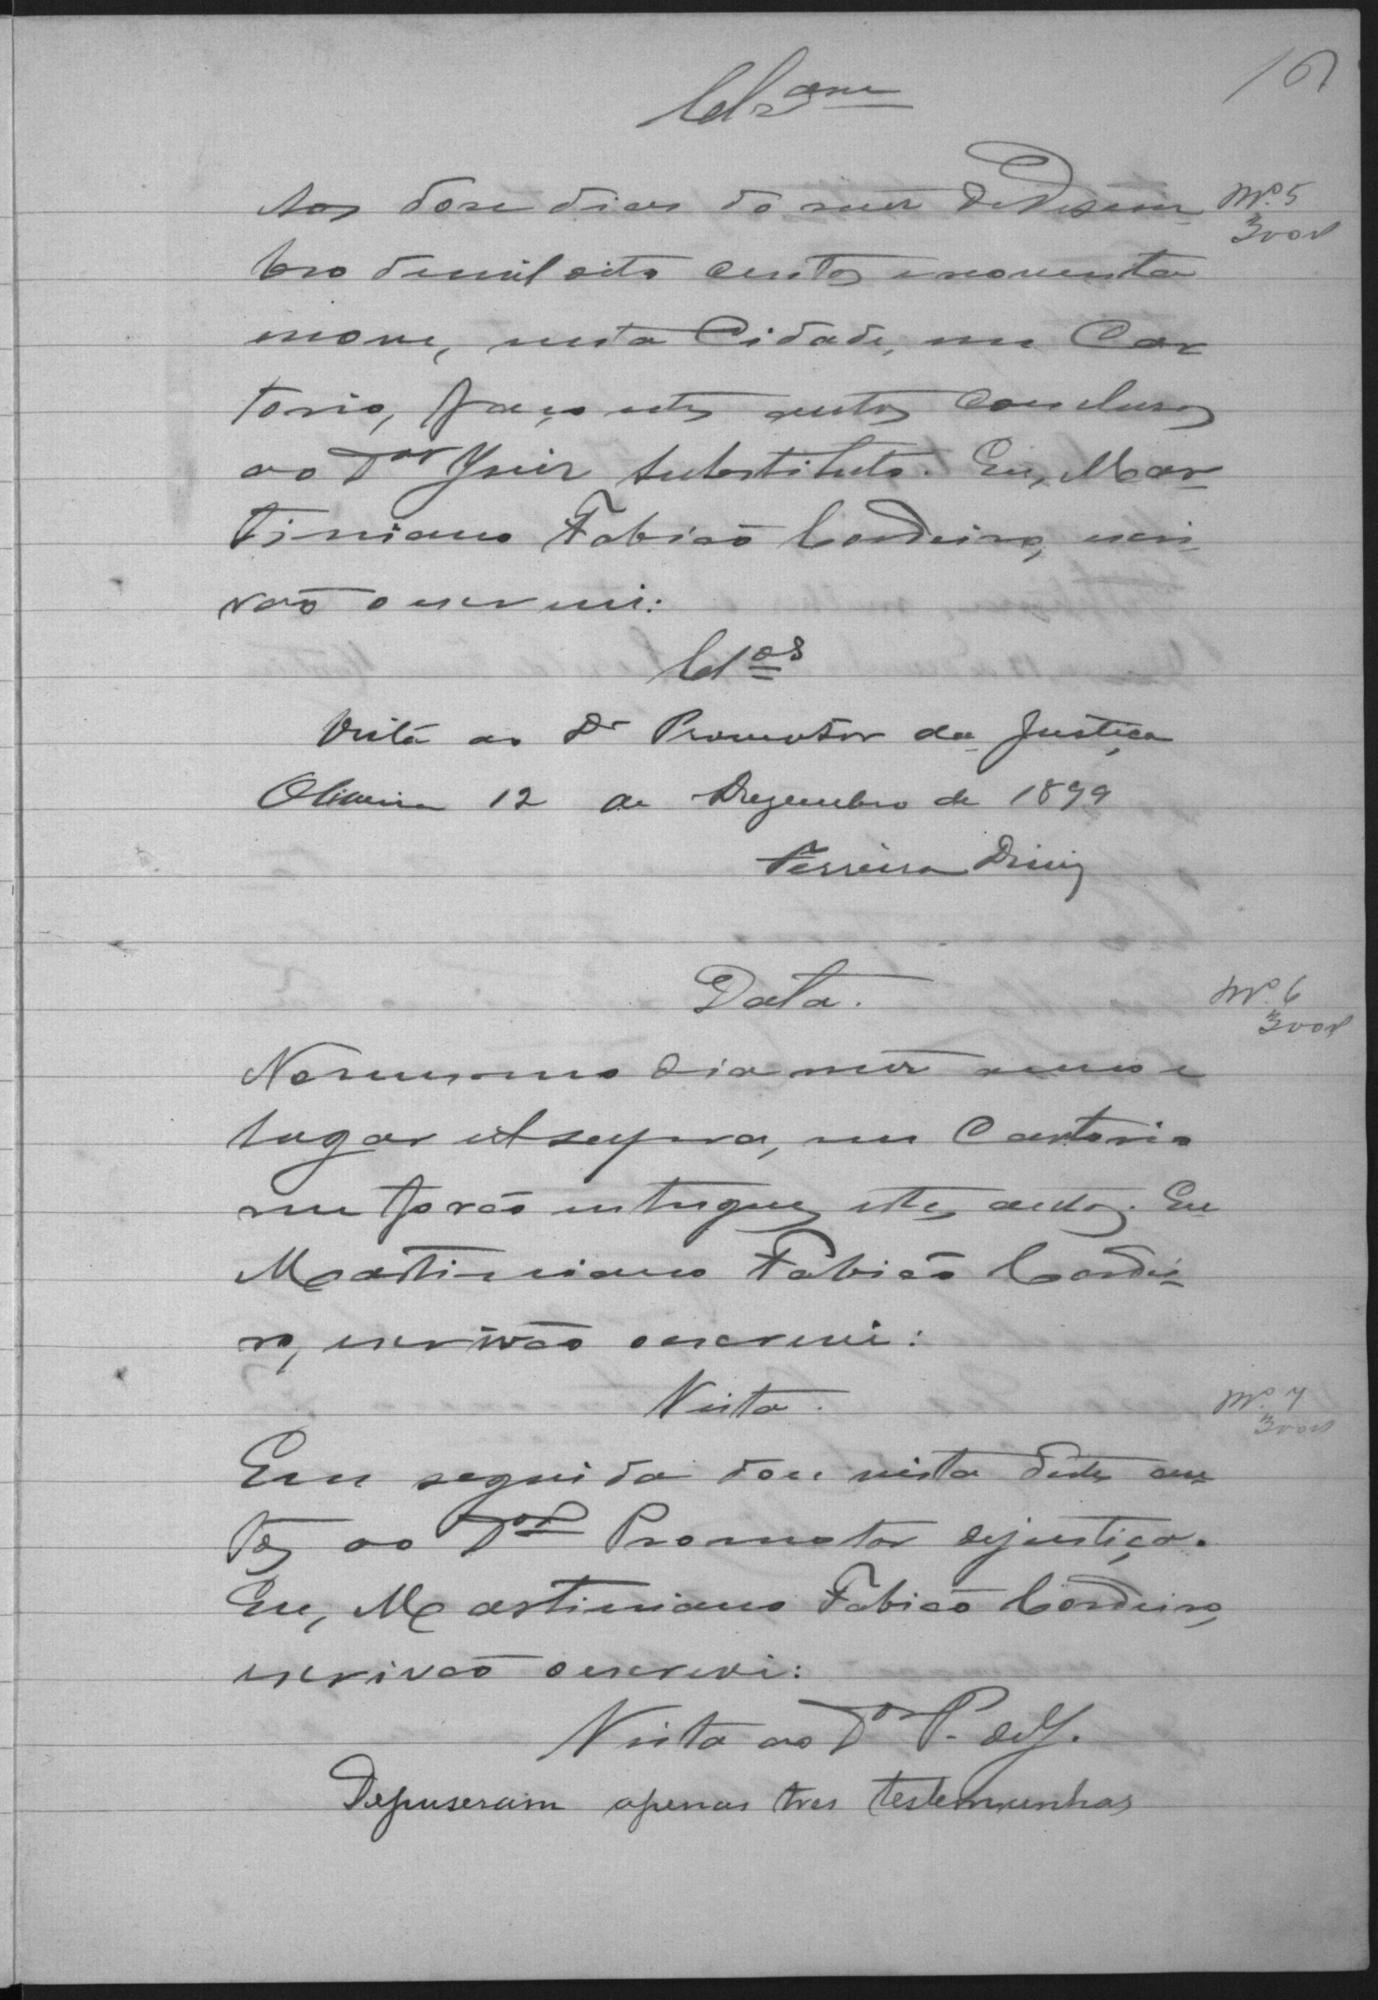 Clsam
Aos dose dias do mez de Dezem-
bro de mil oito centos e noventa
e nove, nesta Cidade, em Car
torio, faço estes autos Conclusos
ao Dor Juiz Substituto. Eu, Mar-
tiniano Fabião Cordeiro, escri
vão o escrevi:
Clos
Vista ao Dr Promotor da Justiça
Oliveira 12 de Dezembro de 1899
Ferreira Diniz
Data.
No mesmo dia mez anno e
lugar ut supra, em Cartorio
me forão entregues estes autos. Eu
Martiniano Fabião Cordei-
ro, escrivão o escrevi:
Vista.
Em seguida dou vista destes au
tos ao Dor Promotor de justiça.
Eu, Martiniano Fabião Cordeiro,
escrivão o escrevi:
Vista ao Dor P. de J.
Depuseram apenas tres testemunhas
Nº 5
300rs
Nº 6
300rs
Nº 7
300rs